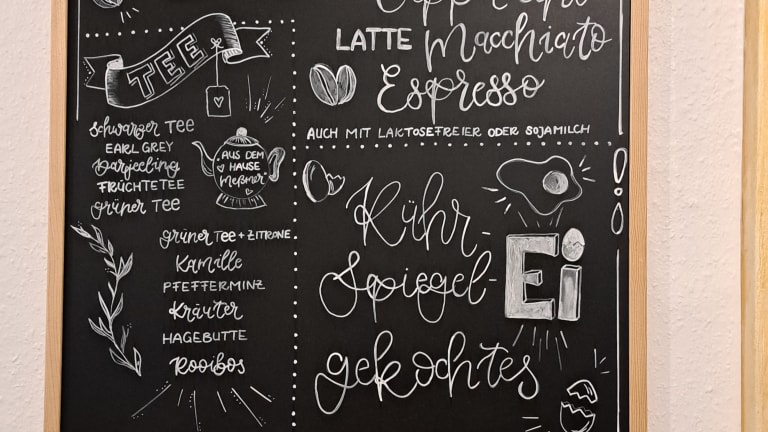 TEE
schwarzer TEE
EARL GREY
Darjeeling
FRÜCHTETEE
grüner TEE
AUS DEM
HAUSE
Meßmer
grüner Tee + ZITRONE
Kamille
PFEFFERMINZ
Kräuter
HAGEBUTTE
Rooibos
LATTE Macchiato
Espresso
AUCH MIT LAKTOSEFREIER ODER SOJAMILCH
Rühr-
Spiegel-
Ei
gekochtes